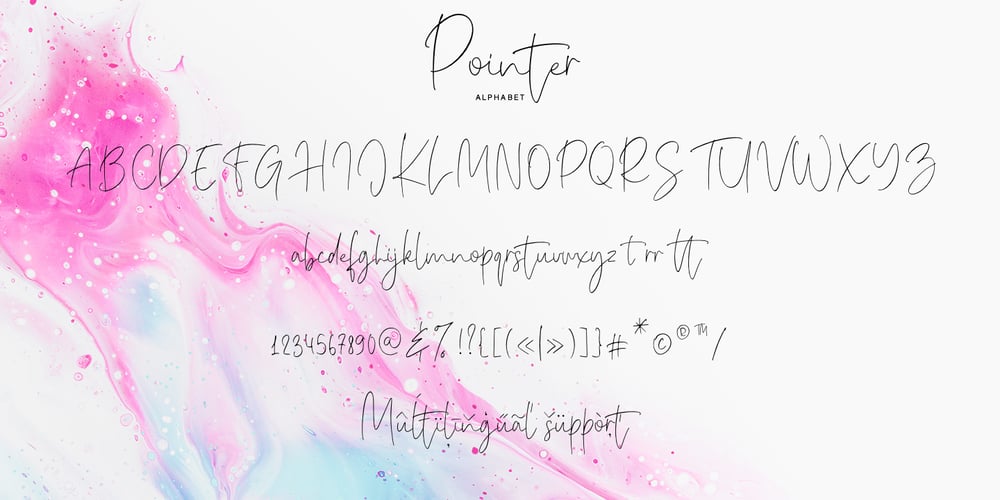 Pointer
ALPHABET
ABCDEFGHIJKLMNOPQRSTUVWXYZ
abcdefghijklmnopqrstuvwxyz t rr tt
1234567890@&%!?{[(«|»)]}#*©®™/
Mûltïlīňġűãľ šüppòrt